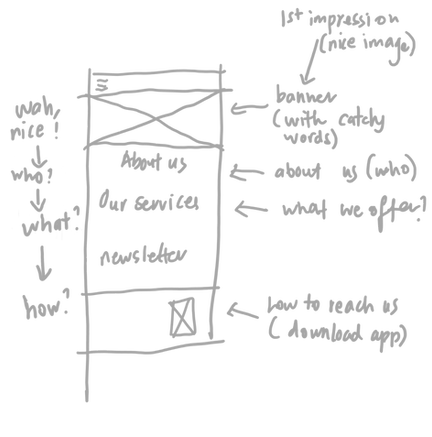 1st impression
(nice image)
banner
(with catchy
words)
wah,
nice!
About us
about us (who)
who?
Our services
what we offer?
what?
newsletter
how?
how to reach us
(download app)